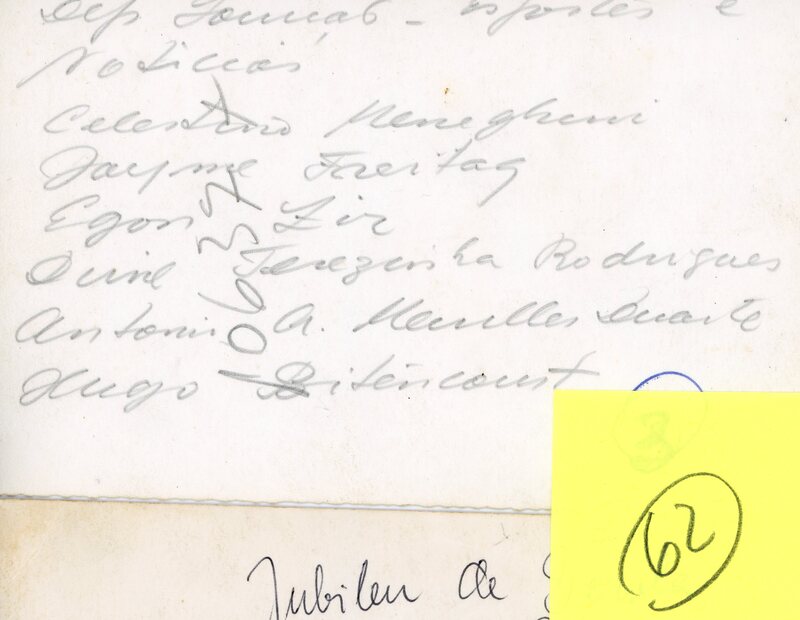 Dep. Esportes e
Noticias
Celestino Meneghini
Jayme Freitag
Egon Zir
Terezinha Rodrigues
Antonio A. Meirelles Duarte
Hugo Bitencourt
3
62
Jubileu de